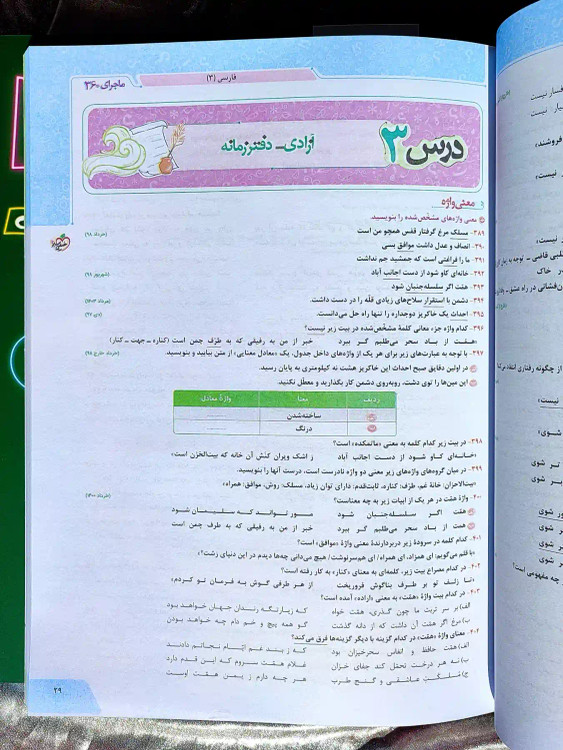 ماجرای ۳۶۰
فارسی (۳)
درس ۳
آزادی - دفتر زمانه
معنی واژه
معنی واژه‌های مشخّص‌شده را بنویسید.
۳۸۹- مسلک مرغ گرفتار قفس همچو من است (خرداد ۹۸)
۳۹۰- انصاف و عدل داشت موافق بسی
۳۹۱- ما را فراغتی است که جمشید جم نداشت
۳۹۲- خانه‌ای کاو شود از دست اجانب آباد (شهریور ۹۸)
۳۹۳- همّت اگر سلسله‌جنبان شود
۳۹۴- دشمن با استقرار سلاح‌های زیادی قلّه را در دست داشت. (خرداد ۱۴۰۳)
۳۹۵- احداث یک خاکریز دوجداره را تنها راه حل می‌دانست. (دی ۹۷)
۳۹۶- کدام واژه جزء معانی کلمۀ مشخّص‌شده در بیت زیر نیست؟
«همّت از باد سحر می‌طلبم گر ببرد خبر از من به رفیقی که به طَرْف چمن است (کناره - جهت - کنار)
۳۹۷- با توجه به عبارت‌های زیر برای هر یک از واژه‌های داخل جدول، یک «معادل معنایی» از متن بیابید و بنویسید. (خرداد خارج ۹۸)
در اولین دقایق صبح احداث این خاکریز هشت نه کیلومتری به پایان رسید.
این مین‌ها را توی دشت، روبه‌روی دشمن کار بگذارید و معطّل نکنید.
ردیف معنا واژۀ معادل
ساخته‌شدن
درنگ
۳۹۸- در بیت زیر کدام کلمه به معنی «ماتمکده» است؟
«خانه‌ای کاو شود از دست اجانب آباد ز اشک ویران کنش آن خانه که بیت‌الحزن است»
۳۹۹- در میان گروه‌های واژه‌های زیر معنی دو واژه نادرست است، درست آنها را بنویسید.
«بیت‌الاحزان: خانۀ غم، طَرْف: کناره، ثابت‌قدم: دارای توان زیاد، مسلک: روش، موافق: همراه»
۴۰۰- واژۀ همّت در هر یک از ابیات زیر به چه معناست؟ (خرداد ۱۴۰۰)
همّت اگر سلسله‌جنبان شود مور تواند که سلیمان شود
همّت از باد سحر می‌طلبم گر ببرد خبر از من به رفیقی که به طَرْف چمن است
۴۰۱- کدام کلمه در سرودۀ زیر دربردارندۀ معنی واژۀ «موافق» است؟
«با قلم می‌گویم: ای همزاد، ای همراه/ ای هم‌سرنوشت/ هیچ می‌دانی چه‌ها دیدم در این دنیای زشت؟»
۴۰۲- در کدام مصراع بیت زیر، کلمه‌ای به معنای «کنار» به کار رفته است؟
«تا زلف تو بر طرف بناگوش فروریخت از هر طرفی گوش به فرمان تو کردم»
۴۰۳- در کدام بیت واژۀ «همّت» به معنی «اراده» آمده است؟
الف) بر سر تربت ما چون گذری، همّت خواه که زیارتگه رندان جهان خواهد بود
ب) مرغ اگر همّت آن داشت که از دانه گذشت گو همه پیچ و خم دام چه خواهد بودن
۴۰۴- معنای واژۀ «همّت» در کدام گزینه با دیگر گزینه‌ها فرق می‌کند؟
الف) همّت حافظ و انفاس سحرخیزان بود که ز بند غم ایّام نجاتم دادند
ب) نه هر درخت تحمّل کند جفای خزان غلام همّت سروم که این قدم دارد
ج) مُملکتِ عاشقی و گنج طرب هر چه دارم ز یمن همّت اوست
۲۹